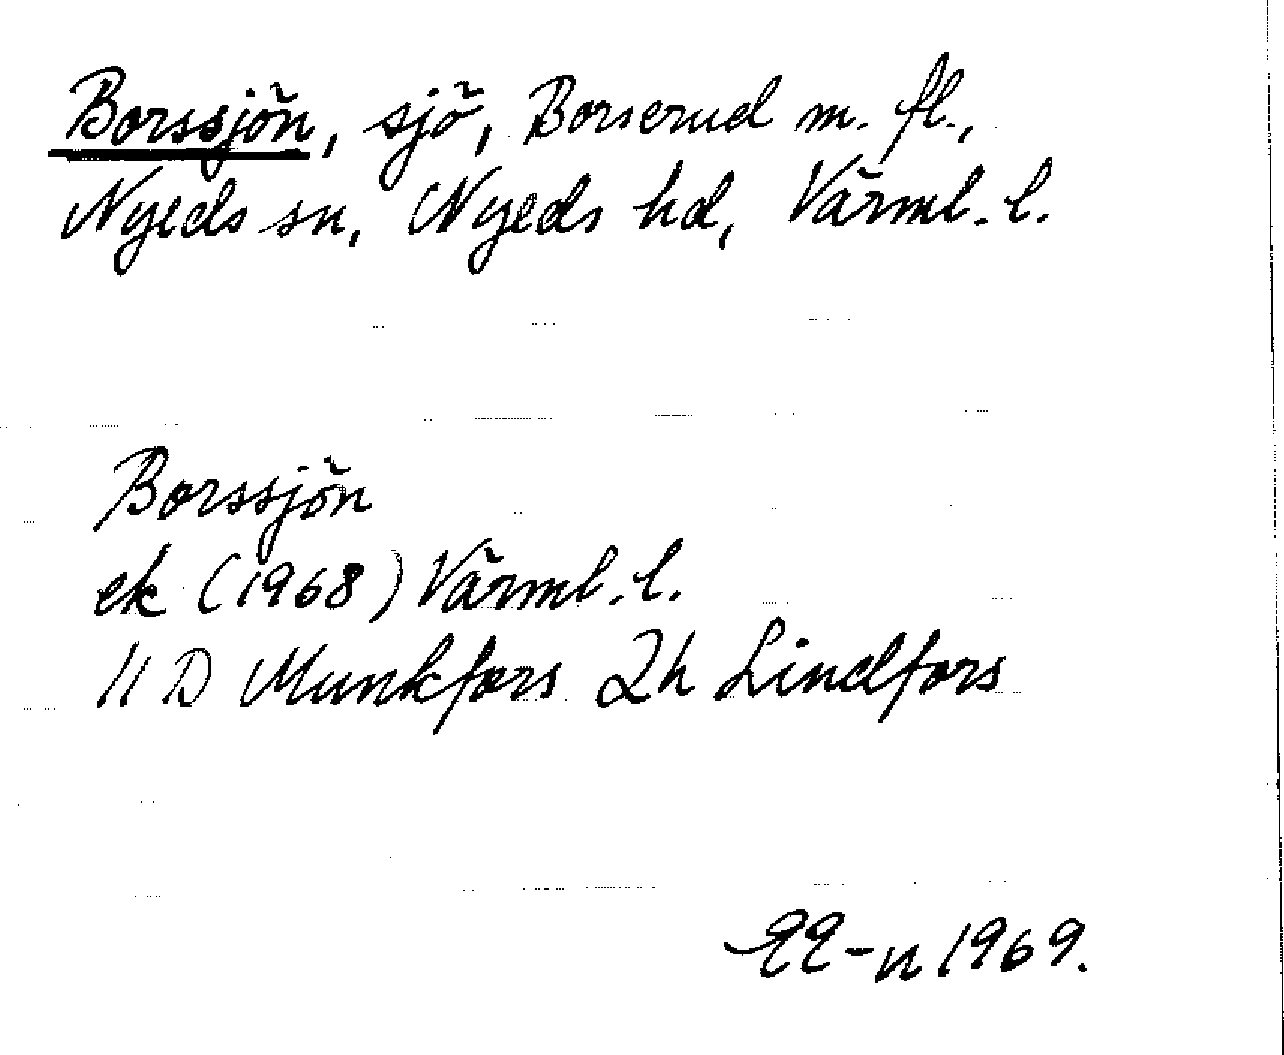 Borssjön, sjö, Borserud m. fl.,
Nyeds sn, Nyeds hd, Värml. l.
Borssjön
ek (1968) Värml. l.
11 D Munkfors 2h Lindfors
EE-n 1969.